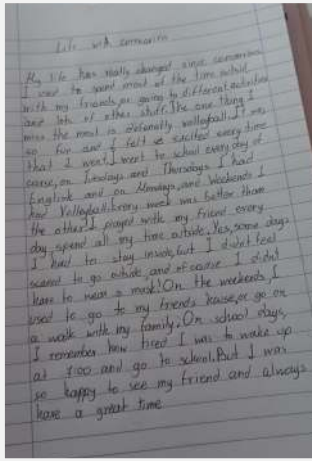 Life with coronavirus
My life has really changed since coronavirus
I used to spend most of the time outside
with my friends, or going to different activities
and lots of other stuff. The one thing I
miss the most is defenatly volleyball. It was
so fun and I felt so excited every time
that I went. I went to school every day of
course, on Tuesdays and Thursdays I had
English and on Mondays, and Weekends I
had Volleyball. Every week was better than
the other! I played with my friend every
day, spend all my time outside. Yes, some days
I had to stay inside, but I didn't feel
scared to go outside and of course I didn't
have to wear a mask! On the weekends, I
used to go to my friends house, or go on
a walk with my family. On school days,
I remember how tired I was to wake up
at 7:00 and go to school. But I was
so happy to see my friend and always
have a great time